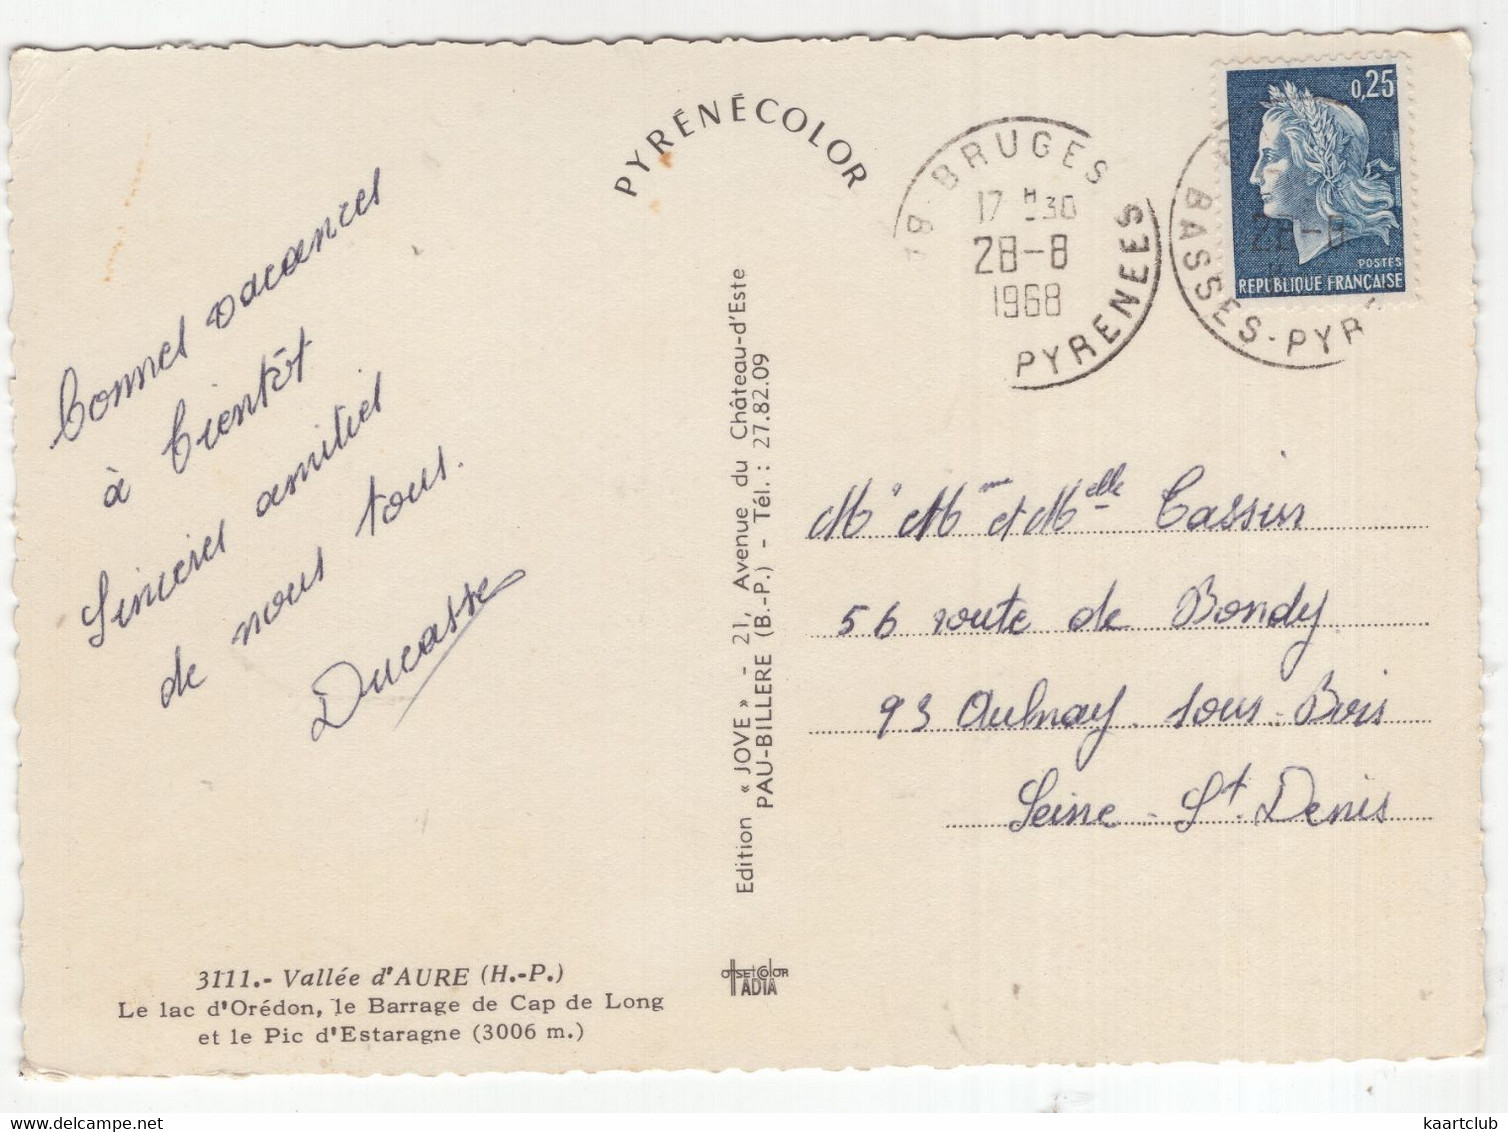 PYRÉNÉCOLOR
Bonnes vacances
à bientôt
Sincères amitiés
de nous tous.
Ducasse
3111.- Vallée d'AURE (H.-P.)
Le lac d'Orédon, le Barrage de Cap de Long
et le Pic d'Estaragne (3006 m.)
Edition « JOVE » - 21, Avenue du Château-d'Este
PAU-BILLERE (B.-P.) - Tél. : 27.82.09
OFFSET COLOR
IADIA
BRUGES
17 H 30
28-8
1968
PYRENEES
BASSES-PYR
28-8
0,25
POSTES
REPUBLIQUE FRANÇAISE
Mr Mme et Melle Cassin
56 route de Bondy
93 Aulnay. sous. Bois
Seine - St. Denis
kaartclub